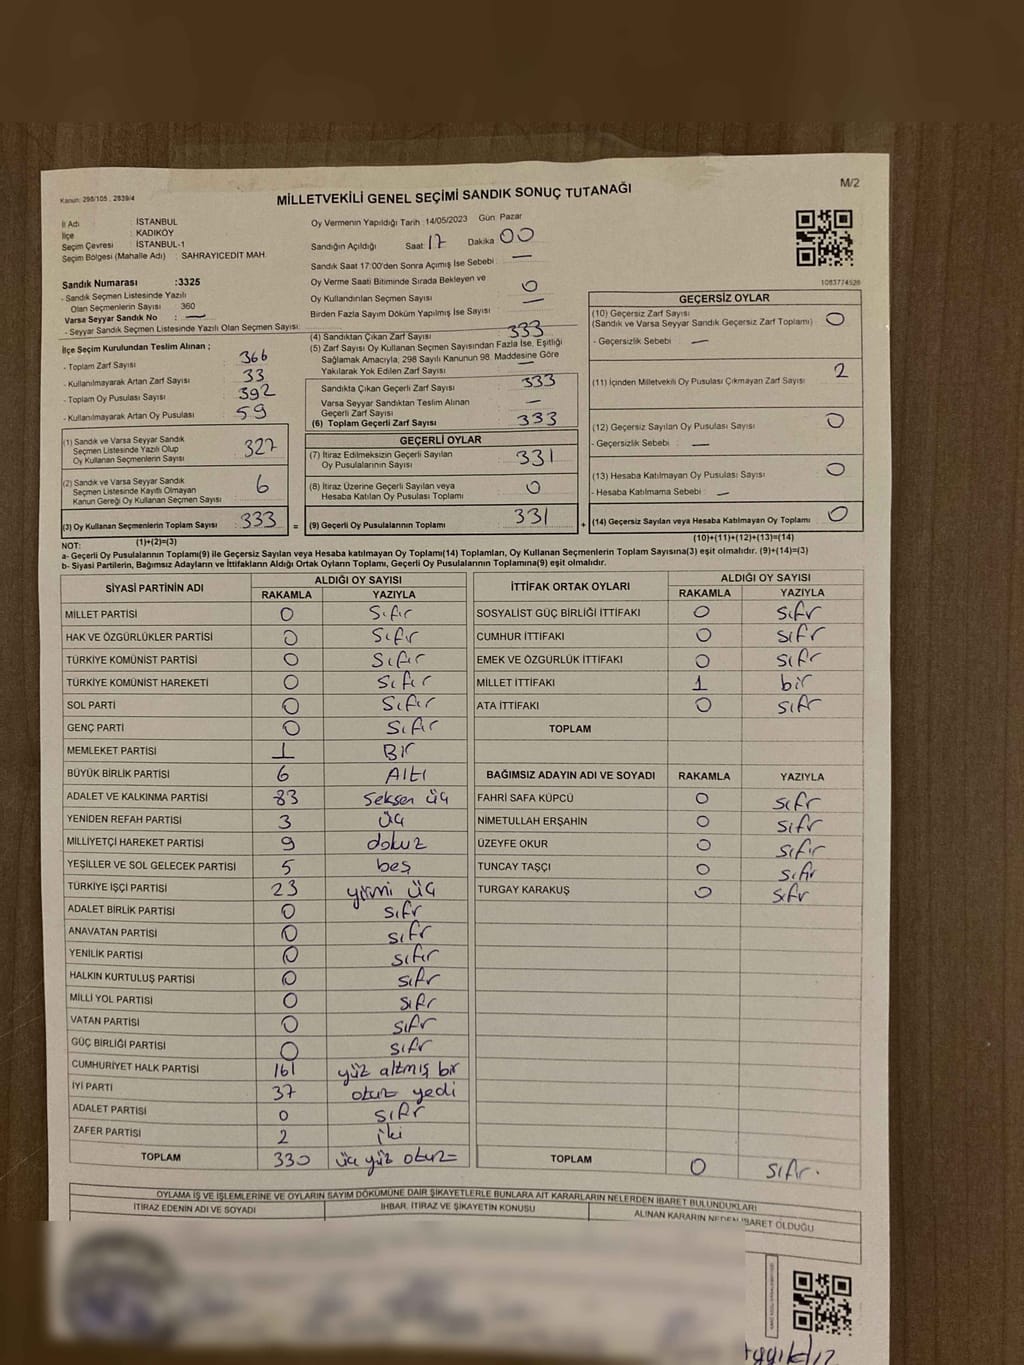 Kanun: 298/105 , 2839/4
MİLLETVEKİLİ GENEL SEÇİMİ SANDIK SONUÇ TUTANAĞI
M/2
İl Adı : İSTANBUL
İlçe : KADIKÖY
Seçim Çevresi : İSTANBUL-1
Seçim Bölgesi (Mahalle Adı) : SAHRAYICEDİT MAH.
Sandık Numarası :3325
- Sandık Seçmen Listesinde Yazılı
Olan Seçmenlerin Sayısı : 360
Varsa Seyyar Sandık No : —
- Seyyar Sandık Seçmen Listesinde Yazılı Olan Seçmen Sayısı:
Oy Vermenin Yapıldığı Tarih :14/05/2023 Gün: Pazar
Sandığın Açıldığı Saat 17 Dakika 00
Sandık Saat 17:00'den Sonra Açımış İse Sebebi : —
Oy Verme Saati Bitiminde Sırada Bekleyen ve
Oy Kullandırılan Seçmen Sayısı 0
Birden Fazla Sayım Döküm Yapılmış İse Sayısı —
1083774526
İlçe Seçim Kurulundan Teslim Alınan ;
- Toplam Zarf Sayısı : 366
- Kullanılmayarak Artan Zarf Sayısı 33
- Toplam Oy Pusulası Sayısı : 392
- Kullanılmayarak Artan Oy Pusulası : 59
(1) Sandık ve Varsa Seyyar Sandık
Seçmen Listesinde Yazılı Olup
Oy Kullanan Seçmenlerin Sayısı 327
(2) Sandık ve Varsa Seyyar Sandık
Seçmen Listesinde Kayıtlı Olmayan
Kanun Gereği Oy Kullanan Seçmen Sayısı 6
(3) Oy Kullanan Seçmenlerin Toplam Sayısı 333 =
(1)+(2)=(3)
(4) Sandıktan Çıkan Zarf Sayısı 333
(5) Zarf Sayısı Oy Kullanan Seçmen Sayısından Fazla İse, Eşitliği
Sağlamak Amacıyla, 298 Sayılı Kanunun 98. Maddesine Göre
Yakılarak Yok Edilen Zarf Sayısı —
Sandıkta Çıkan Geçerli Zarf Sayısı 333
Varsa Seyyar Sandıktan Teslim Alınan
Geçerli Zarf Sayısı —
(6) Toplam Geçerli Zarf Sayısı 333
GEÇERLİ OYLAR
(7) İtiraz Edilmeksizin Geçerli Sayılan
Oy Pusulalarının Sayısı 331
(8) İtiraz Üzerine Geçerli Sayılan veya
Hesaba Katılan Oy Pusulası Toplamı 0
(9) Geçerli Oy Pusulalarının Toplamı 331 +
GEÇERSİZ OYLAR
(10) Geçersiz Zarf Sayısı
(Sandık ve Varsa Seyyar Sandık Geçersiz Zarf Toplamı) 0
- Geçersizlik Sebebi : —
(11) İçinden Milletvekili Oy Pusulası Çıkmayan Zarf Sayısı 2
(12) Geçersiz Sayılan Oy Pusulası Sayısı 0
- Geçersizlik Sebebi : —
(13) Hesaba Katılmayan Oy Pusulası Sayısı 0
- Hesaba Katılmama Sebebi : —
(14) Geçersiz Sayılan veya Hesaba Katılmayan Oy Toplamı 0
(10)+(11)+(12)+(13)=(14)
NOT:
a- Geçerli Oy Pusulalarının Toplamı(9) ile Geçersiz Sayılan veya Hesaba katılmayan Oy Toplamı(14) Toplamları, Oy Kullanan Seçmenlerin Toplam Sayısına(3) eşit olmalıdır. (9)+(14)=(3)
b- Siyasi Partilerin, Bağımsız Adayların ve İttifakların Aldığı Ortak Oyların Toplamı, Geçerli Oy Pusulalarının Toplamına(9) eşit olmalıdır.
SİYASİ PARTİNİN ADI ALDIĞI OY SAYISI
RAKAMLA YAZIYLA
MİLLET PARTİSİ 0 Sıfır
HAK VE ÖZGÜRLÜKLER PARTİSİ 0 Sıfır
TÜRKİYE KOMÜNİST PARTİSİ 0 Sıfır
TÜRKİYE KOMÜNİST HAREKETİ 0 Sıfır
SOL PARTİ 0 Sıfır
GENÇ PARTİ 0 Sıfır
MEMLEKET PARTİSİ 1 Bir
BÜYÜK BİRLİK PARTİSİ 6 Altı
ADALET VE KALKINMA PARTİSİ 83 Seksen üç
YENİDEN REFAH PARTİSİ 3 üç
MİLLİYETÇİ HAREKET PARTİSİ 9 dokuz
YEŞİLLER VE SOL GELECEK PARTİSİ 5 beş
TÜRKİYE İŞÇİ PARTİSİ 23 yirmi üç
ADALET BİRLİK PARTİSİ 0 sıfır
ANAVATAN PARTİSİ 0 sıfır
YENİLİK PARTİSİ 0 sıfır
HALKIN KURTULUŞ PARTİSİ 0 sıfır
MİLLİ YOL PARTİSİ 0 sıfır
VATAN PARTİSİ 0 sıfır
GÜÇ BİRLİĞİ PARTİSİ 0 sıfır
CUMHURİYET HALK PARTİSİ 161 yüz altmış bir
İYİ PARTİ 37 otuz yedi
ADALET PARTİSİ 0 sıfır
ZAFER PARTİSİ 2 iki
TOPLAM 330 üç yüz otuz
İTTİFAK ORTAK OYLARI ALDIĞI OY SAYISI
RAKAMLA YAZIYLA
SOSYALİST GÜÇ BİRLİĞİ İTTİFAKI 0 sıfır
CUMHUR İTTİFAKI 0 sıfır
EMEK VE ÖZGÜRLÜK İTTİFAKI 0 sıfır
MİLLET İTTİFAKI 1 bir
ATA İTTİFAKI 0 sıfır
TOPLAM
BAĞIMSIZ ADAYIN ADI VE SOYADI RAKAMLA YAZIYLA
FAHRİ SAFA KÜPCÜ 0 sıfır
NİMETULLAH ERŞAHİN 0 sıfır
ÜZEYFE OKUR 0 sıfır
TUNCAY TAŞÇI 0 sıfır
TURGAY KARAKUŞ 0 sıfır
TOPLAM 0 sıfır.
OYLAMA İŞ VE İŞLEMLERİNE VE OYLARIN SAYIM DÖKÜMÜNE DAİR ŞİKAYETLERLE BUNLARA AİT KARARLARIN NELERDEN İBARET BULUNDUKLARI
İTİRAZ EDENİN ADI VE SOYADI İHBAR, İTİRAZ VE ŞİKAYETİN KONUSU ALINAN KARARIN NEDEN İBARET OLDUĞU